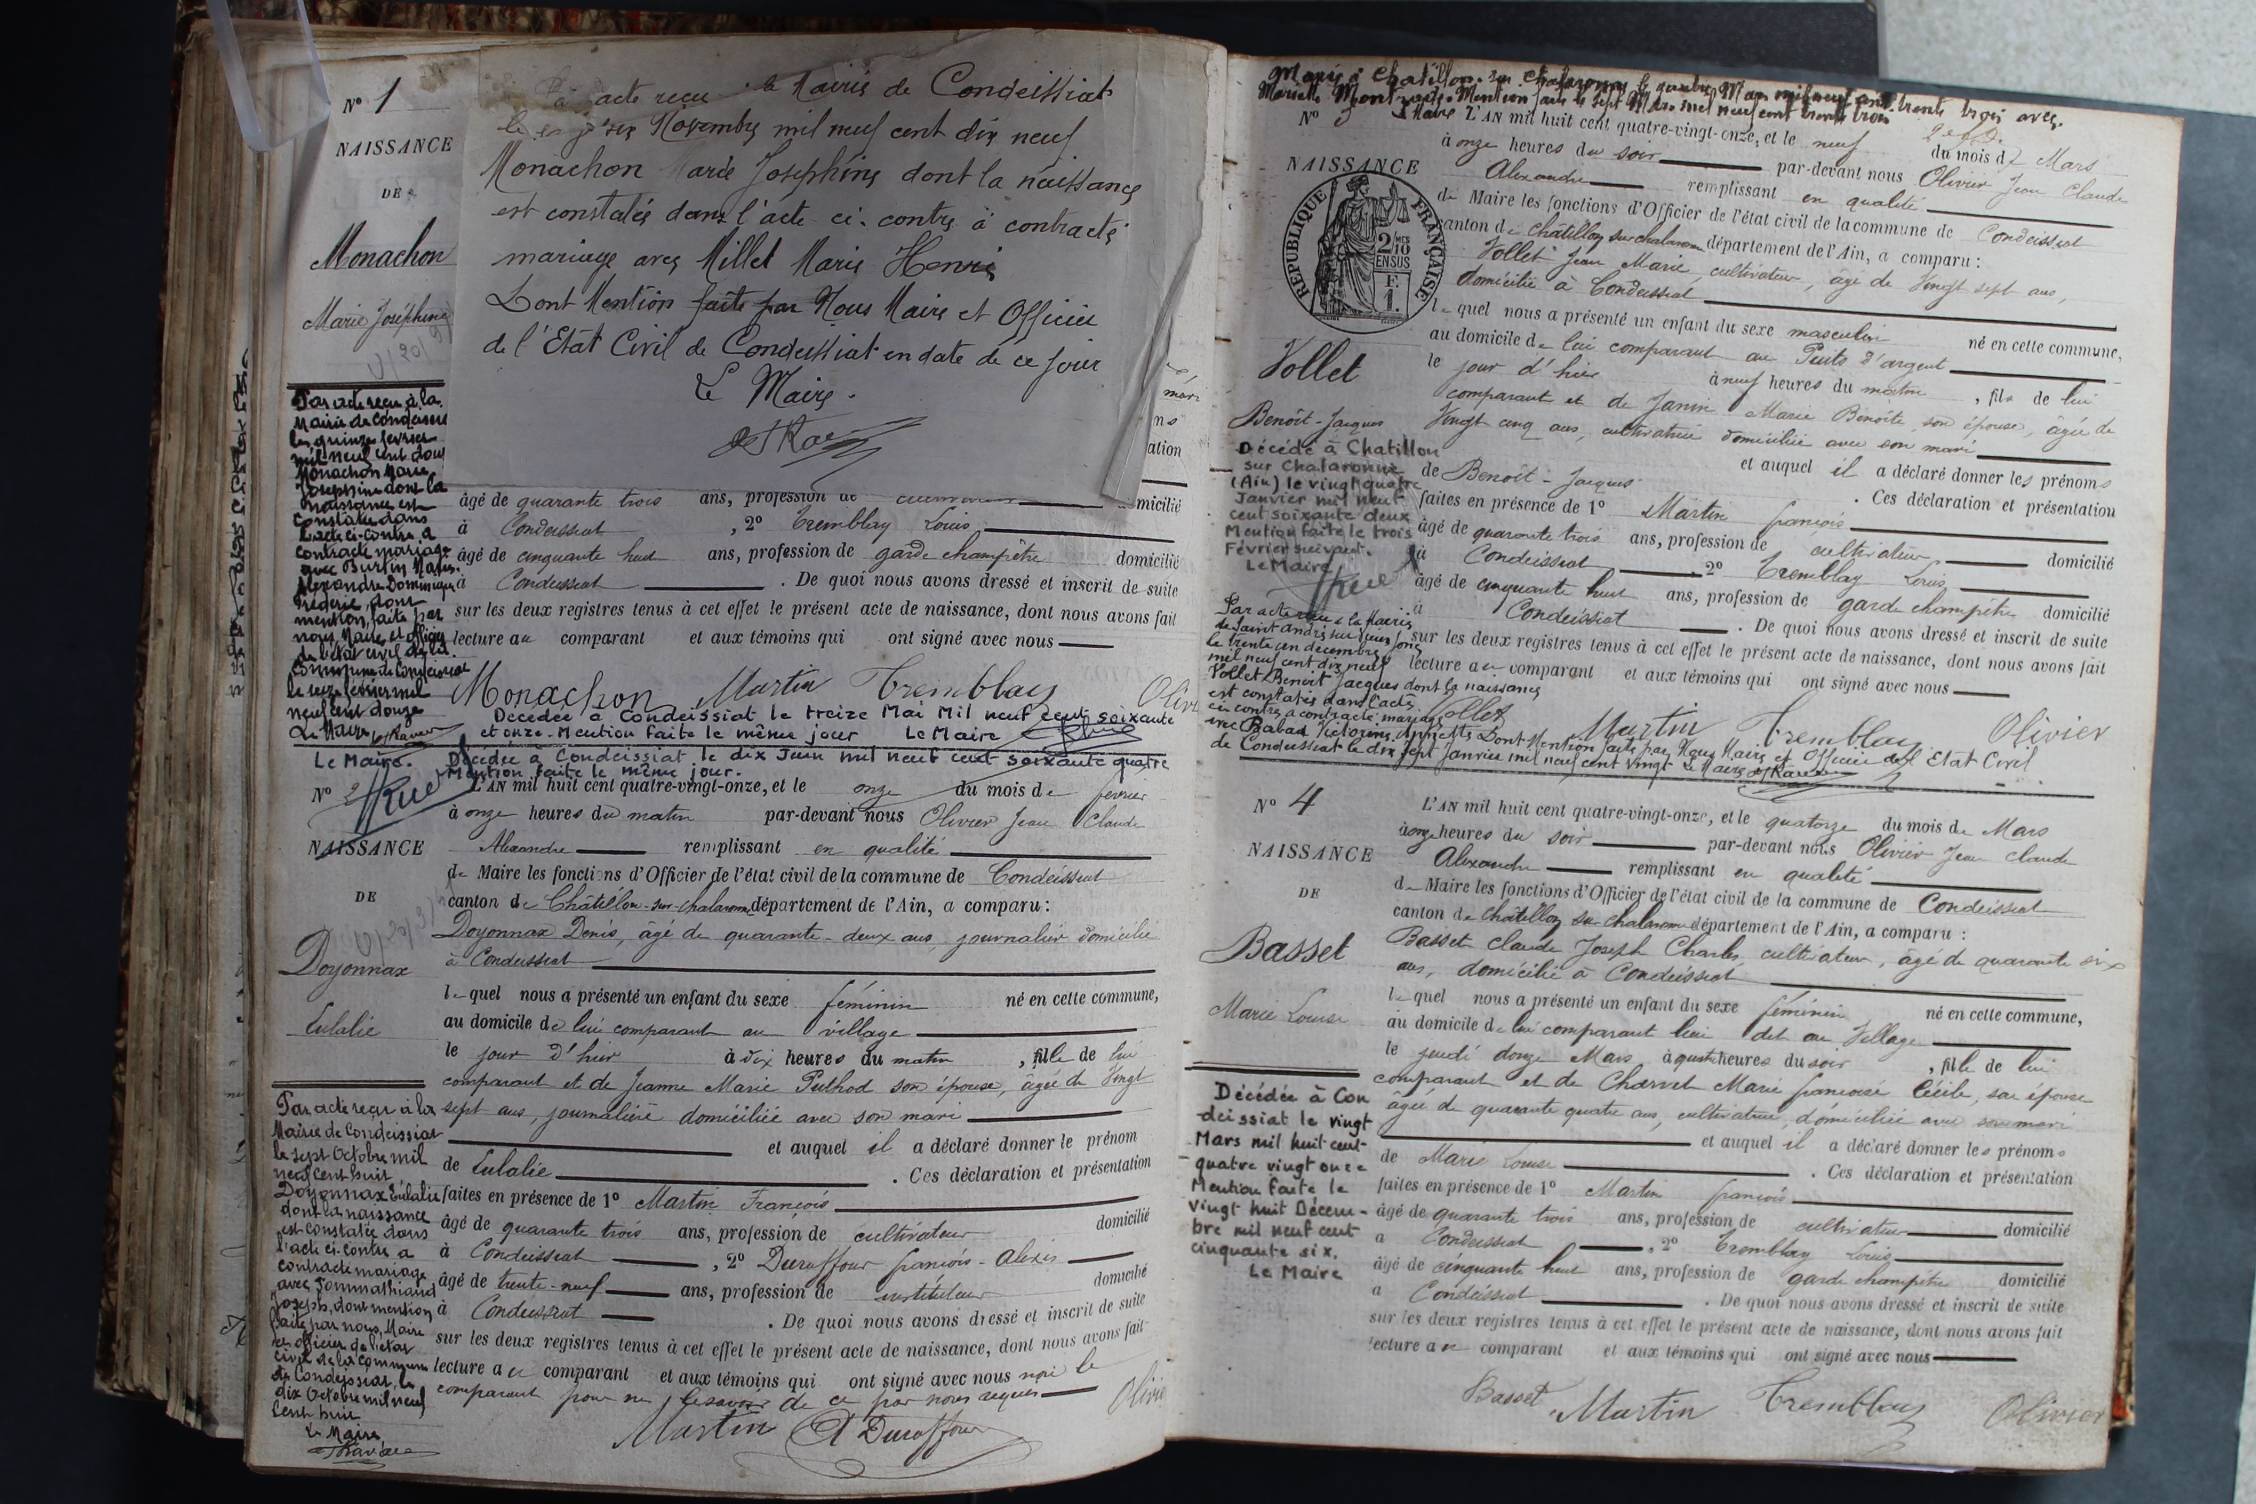 N° 1
NAISSANCE
DE
Monachon
Marie Joséphine
acte reçu à la Mairie de Condeissiat
Novembre mil neuf cent dix neuf
Monachon Marie Joséphine dont la naissance
est constatée dans l'acte ci-contre à contracté
mariage avec Millet Marie Henri
Dont Mention faite par Nous Maire et Officier
de l'Etat Civil de Condeissiat en date de ce jour
Le Maire.
Par acte reçu à la
Mairie de Condeissiat
le quinze février
mil neuf cent douze
Monachon Marie
Joséphine dont la
naissance est
constatée dans
l'acte ci-contre, a
contracté mariage
avec Burtin Marie
Alexandre Dominique
Frédéric, dont
mention faite par
nous, Maire et officier
de l'état civil de la
Commune de Condeissiat
le seize février mil
neuf cent douze
Le Maire
âgé de quarante trois ans, profession de
domicilié
à Condeissiat , 2° Tremblay Louis
âgé de cinquante huit ans, profession de garde champêtre domicilié
à Condeissiat . De quoi nous avons dressé et inscrit de suite
sur les deux registres tenus à cet effet le présent acte de naissance, dont nous avons fait
lecture au comparant et aux témoins qui ont signé avec nous
Monachon Martin Tremblay
Décédée à Condeissiat le treize Mai Mil neuf cent soixante
et onze. Mention faite le même jour Le Maire
Décédée à Condeissiat le dix Juin mil neuf cent soixante quatre
Mention faite le même jour.
Le Maire.
N° 2
NAISSANCE
DE
Doyonnax
Eulalie
L'AN mil huit cent quatre-vingt-onze, et le onze du mois de février
à onze heures du matin par-devant nous Olivier Jean Claude
Alexandre remplissant en qualité
de Maire les fonctions d'Officier de l'état civil de la commune de Condeissiat
canton de Châtillon-sur-chalaronne département de l'Ain, a comparu :
Doyonnax Denis, âgé de quarante-deux ans, journalier domicilié
à Condeissiat
lequel nous a présenté un enfant du sexe féminin né en cette commune,
au domicile de lui comparant au village
le jour d'hier à dix heures du matin , fille de lui
comparant et de Jeanne Marie Puthod son épouse, âgée de Vingt
sept ans, journalière domiciliée avec son mari
et auquel il a déclaré donner le prénom
de Eulalie . Ces déclaration et présentation
faites en présence de 1° Martin François
âgé de quarante trois ans, profession de cultivateur domicilié
à Condeissiat , 2° Duraffour françois-Alexis
âgé de trente-neuf ans, profession de instituteur domicilié
à Condeissiat . De quoi nous avons dressé et inscrit de suite
sur les deux registres tenus à cet effet le présent acte de naissance, dont nous avons fait
lecture au comparant et aux témoins qui ont signé avec nous non le
comparant pour ne le savoir de ce par nous requis
Martin A Duraffour
Par acte reçu à la
Mairie de Condeissiat
le sept Octobre mil
neuf Cent huit
Doyonnax Eulalie
dont la naissance
est constatée dans
l'acte ci-contre a
contracté mariage
avec Pommathiaud
Joseph, dont mention
faite par nous, Maire
et officier de l'état
civil de la commune
de Condeissiat, le
dix Octobre mil neuf
Cent huit
Le Maire
Marié à Chatillon-sur-Chalaronne le quatre Mars mil neuf cent trente trois avec
Mention faite le sept Mars mil neuf cent trente trois
N° 3
NAISSANCE
RÉPUBLIQUE FRANÇAISE
Vollet
Benoît-Jacques
L'AN mil huit cent quatre-vingt-onze, et le neuf du mois de Mars
à onze heures du soir par-devant nous Olivier Jean Claude
Alexandre remplissant en qualité
de Maire les fonctions d'Officier de l'état civil de la commune de Condeissiat
canton de châtillon sur chalaronne département de l'Ain, a comparu :
Vollet Jean Marie, cultivateur, âgé de Vingt sept ans,
domicilié à Condeissiat
lequel nous a présenté un enfant du sexe masculin né en cette commune,
au domicile de lui comparant au Puits d'argent
le jour d'hier à neuf heures du matin , fils de lui
comparant et de Janin Marie Benoîte, son épouse, âgée de
Vingt cinq ans, cultivatrice domiciliée avec son mari
et auquel il a déclaré donner les prénoms
de Benoît-Jacques . Ces déclaration et présentation
faites en présence de 1° Martin françois
âgé de quarante trois ans, profession de cultivateur domicilié
à Condeissiat , 2° Tremblay Louis
âgé de cinquante huit ans, profession de garde champêtre domicilié
à Condeissiat . De quoi nous avons dressé et inscrit de suite
sur les deux registres tenus à cet effet le présent acte de naissance, dont nous avons fait
lecture au comparant et aux témoins qui ont signé avec nous
Vollet Martin Tremblay Olivier
Décédé à Chatillon
sur Chalaronne
(Ain) le vingt quatre
Janvier mil neuf
cent soixante deux
Mention faite le trois
Février suivant.
Le Maire
Par acte reçu à la Mairie
de Saint André sur Vieux Jonc
le trente un décembre
mil neuf cent dix neuf
Vollet Benoît Jacques dont la naissance
est constatée dans l'acte
ci-contre a contracté mariage
avec Babad Victorine Dont Mention faite par Nous Maire et Officier de l'Etat Civil
de Condeissiat le dix sept Janvier mil neuf cent vingt Le Maire
N° 4
NAISSANCE
DE
Basset
Marie Louise
L'AN mil huit cent quatre-vingt-onze, et le quatorze du mois de Mars
à onze heures du soir par-devant nous Olivier Jean claude
Alexandre remplissant en qualité
de Maire les fonctions d'Officier de l'état civil de la commune de Condeissiat
canton de châtillon sur chalaronne département de l'Ain, a comparu :
Basset claude Joseph Charles, cultivateur, âgé de quarante six
ans, domicilié à Condeissiat
lequel nous a présenté un enfant du sexe féminin né en cette commune,
au domicile de lui comparant lieu dit au Village
le jeudi douze Mars à quatre heures du soir , fille de lui
comparant et de Charvet Marie françoise Cécile, son épouse
âgée de quarante quatre ans, cultivatrice, domiciliée avec son mari
et auquel il a déclaré donner les prénoms
de Marie Louise . Ces déclaration et présentation
faites en présence de 1° Martin françois
âgé de quarante trois ans, profession de cultivateur domicilié
à Condeissiat , 2° Tremblay Louis
âgé de cinquante huit ans, profession de garde champêtre domicilié
à Condeissiat . De quoi nous avons dressé et inscrit de suite
sur les deux registres tenus à cet effet le présent acte de naissance, dont nous avons fait
lecture au comparant et aux témoins qui ont signé avec nous
Basset Martin Tremblay Olivier
Décédée à Con
deissiat le vingt
Mars mil huit cent
quatre vingt onze
Mention faite le
vingt huit Décem-
bre mil neuf cent
cinquante six.
Le Maire